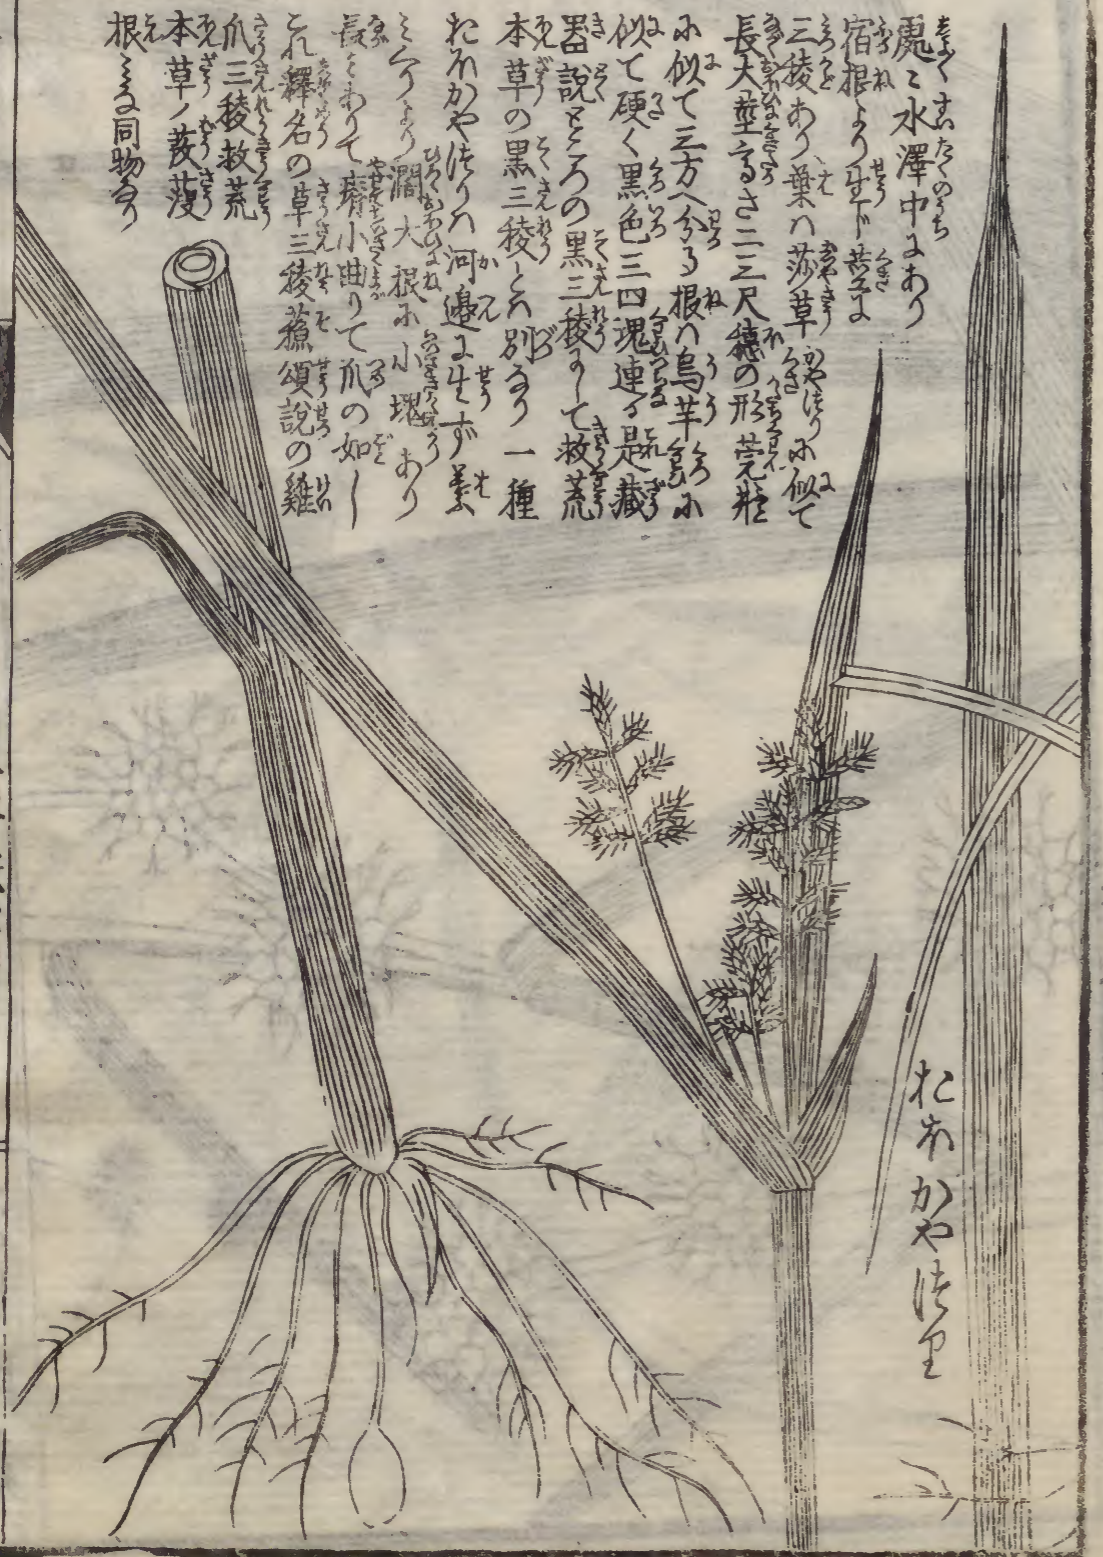 處々水澤中にあり
宿根より生ド茎に
三稜あり葉ハ莎草に似て
長大茎高さ二三尺穗の形莞
に似て三方へ分る根ハ烏芋に
似て硬く黒色三四塊連る是藏
器説ところの黒三稜にして救荒
本草の黒三稜とハ別なり一種
おほかやつりハ河邉に生ず葉
みくりより濶大根に小塊あり
長くありて瘠小曲りて爪の如し
これ釋名の草三稜蘓頌説の雞
爪三稜救荒
本草ノ茇
根みな同物なり
おほかやつり